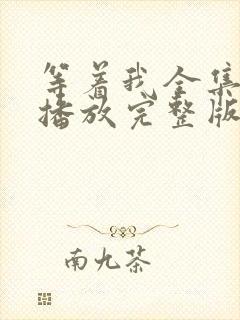 等着我全集
播放完整版
南九茶